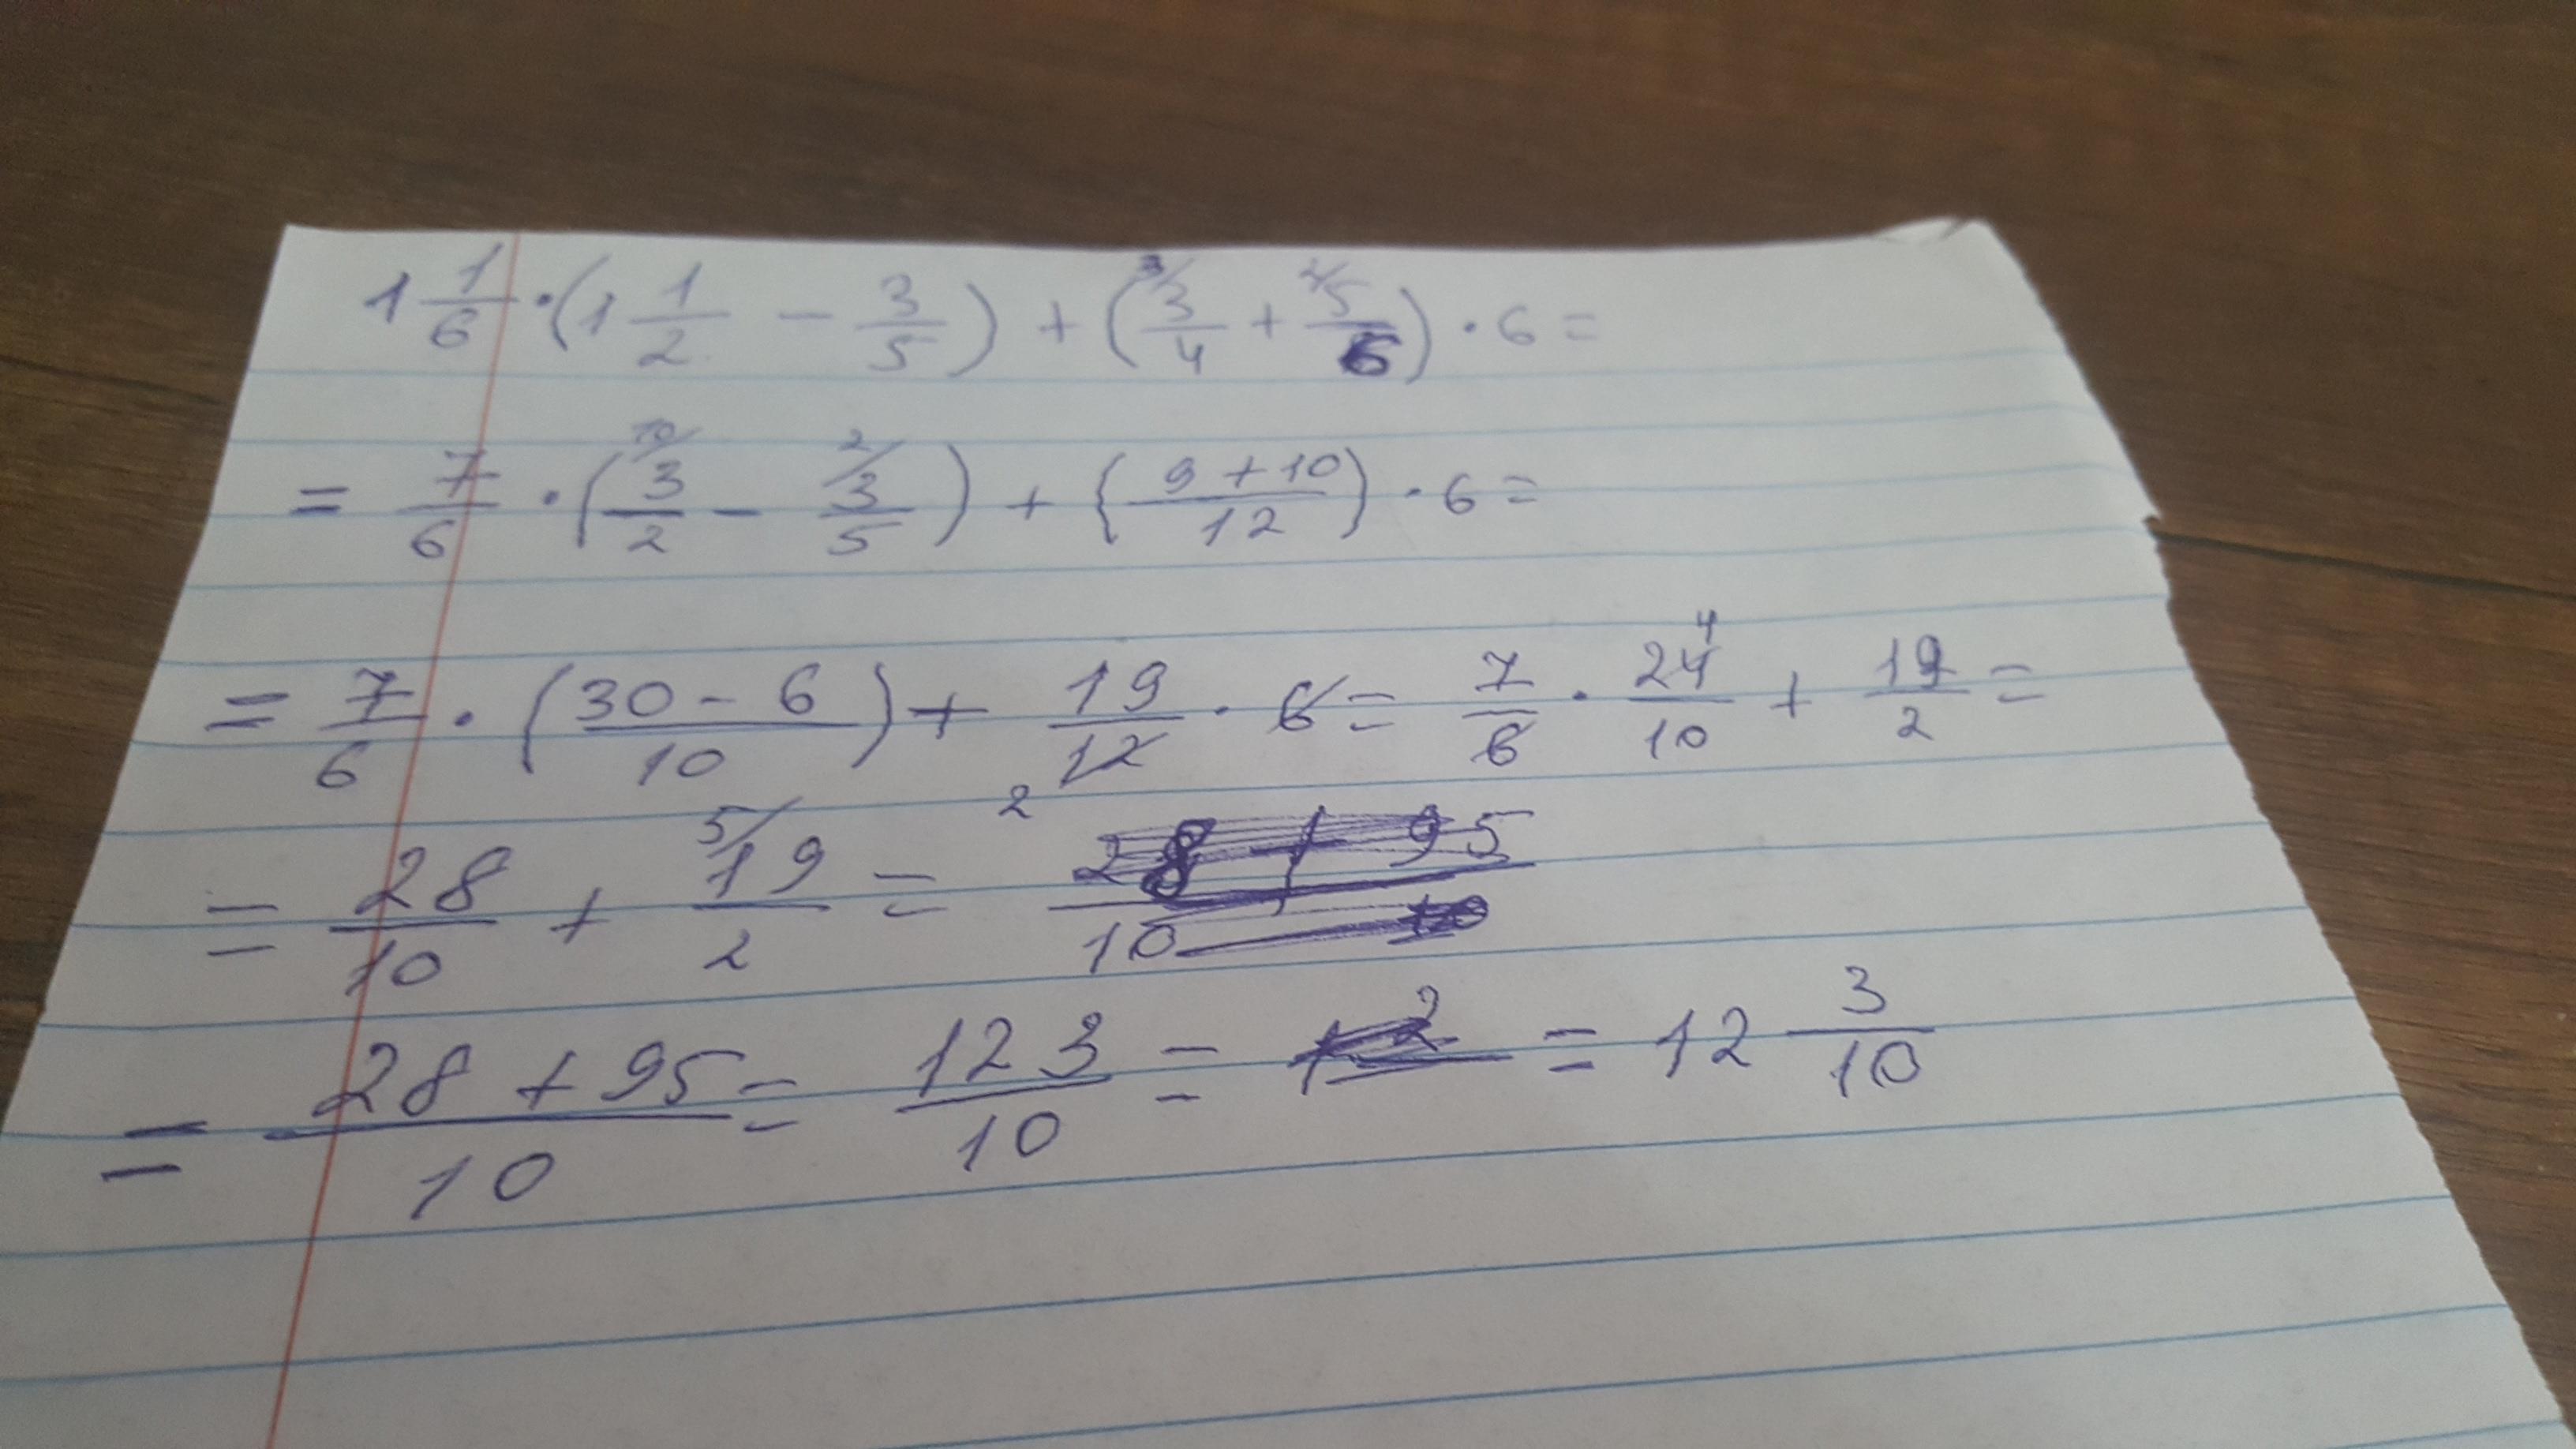 1 1/6 · (1 1/2 - 3/5) + (3/ 3/4 + 2/ 5/6) · 6 =
= 7/6 · (10/ 3/2 - 2/ 3/5) + (9 + 10)/12 · 6 =
= 7/6 · (30 - 6)/10 + 19/12 2 · 6 = 7/6 · 24/10 4 + 19/2 =
= 28/10 + 5/ 19/2 = 28 + 95/10
= 28 + 95/10 = 123/10 = = 12 3/10